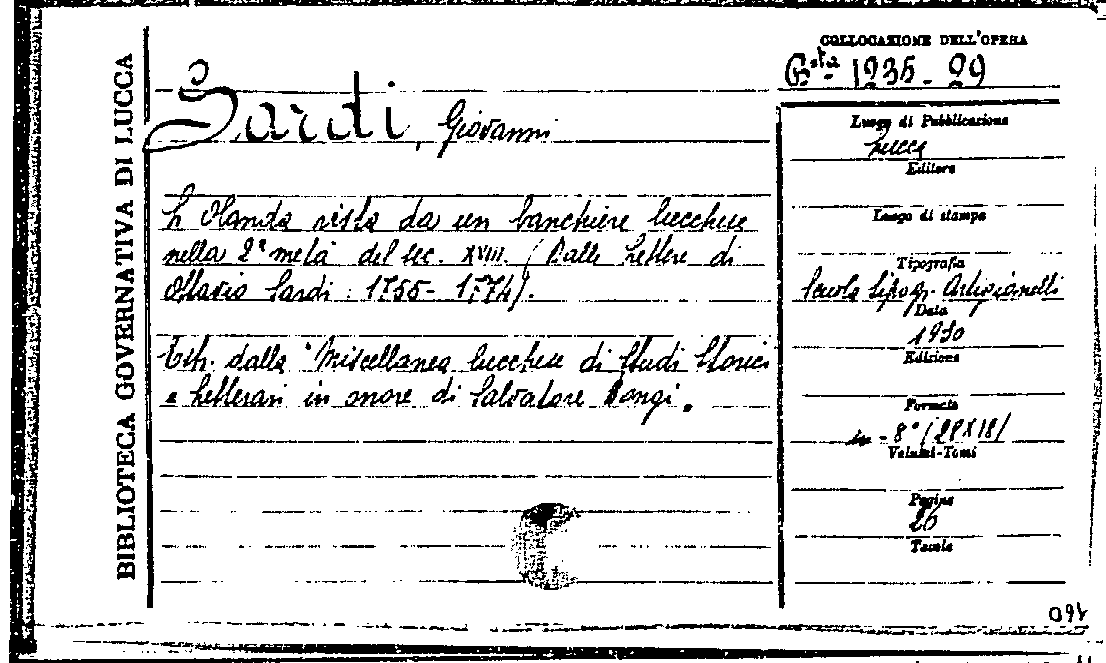 BIBLIOTECA GOVERNATIVA DI LUCCA
COLLOCAZIONE DELL'OPERA
B.sta 1235-29
Sardi, Giovanni
L'Olanda vista da un banchiere lucchese
nella 2ª metà del sec. XVIII. (Dalle Lettere di
Ottavio Sardi: 1755-1774).
Estr. dalla "Miscellanea lucchese di Studi Storici
e Letterari in onore di Salvatore Bongi.
Luogo di Pubblicazione
Lucca
Editore
Luogo di stampa
Tipografia
Scuola Tipogr. Artigianelli
Data
1930
Edizione
Formato
in-8° (28X18)
Volumi-Tomi
Pagine
26
Tavole